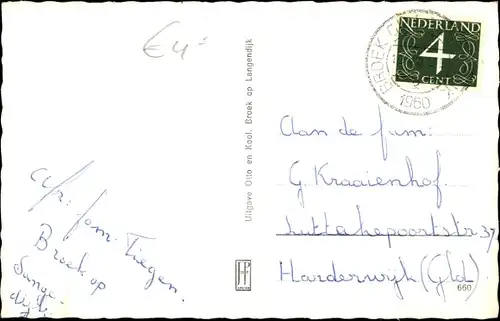 €4=
NEDERLAND
4
CENT
BROEK
1960
Uitgave Otto en Kool. Broek op Langendijk
Aan de fam:
G. Kraaienhof.
Luttekepoortstr 37
Harderwijk (Gld)
660
Afz: fam. Tiegen.
Broek op
Lange-
dijk
HP